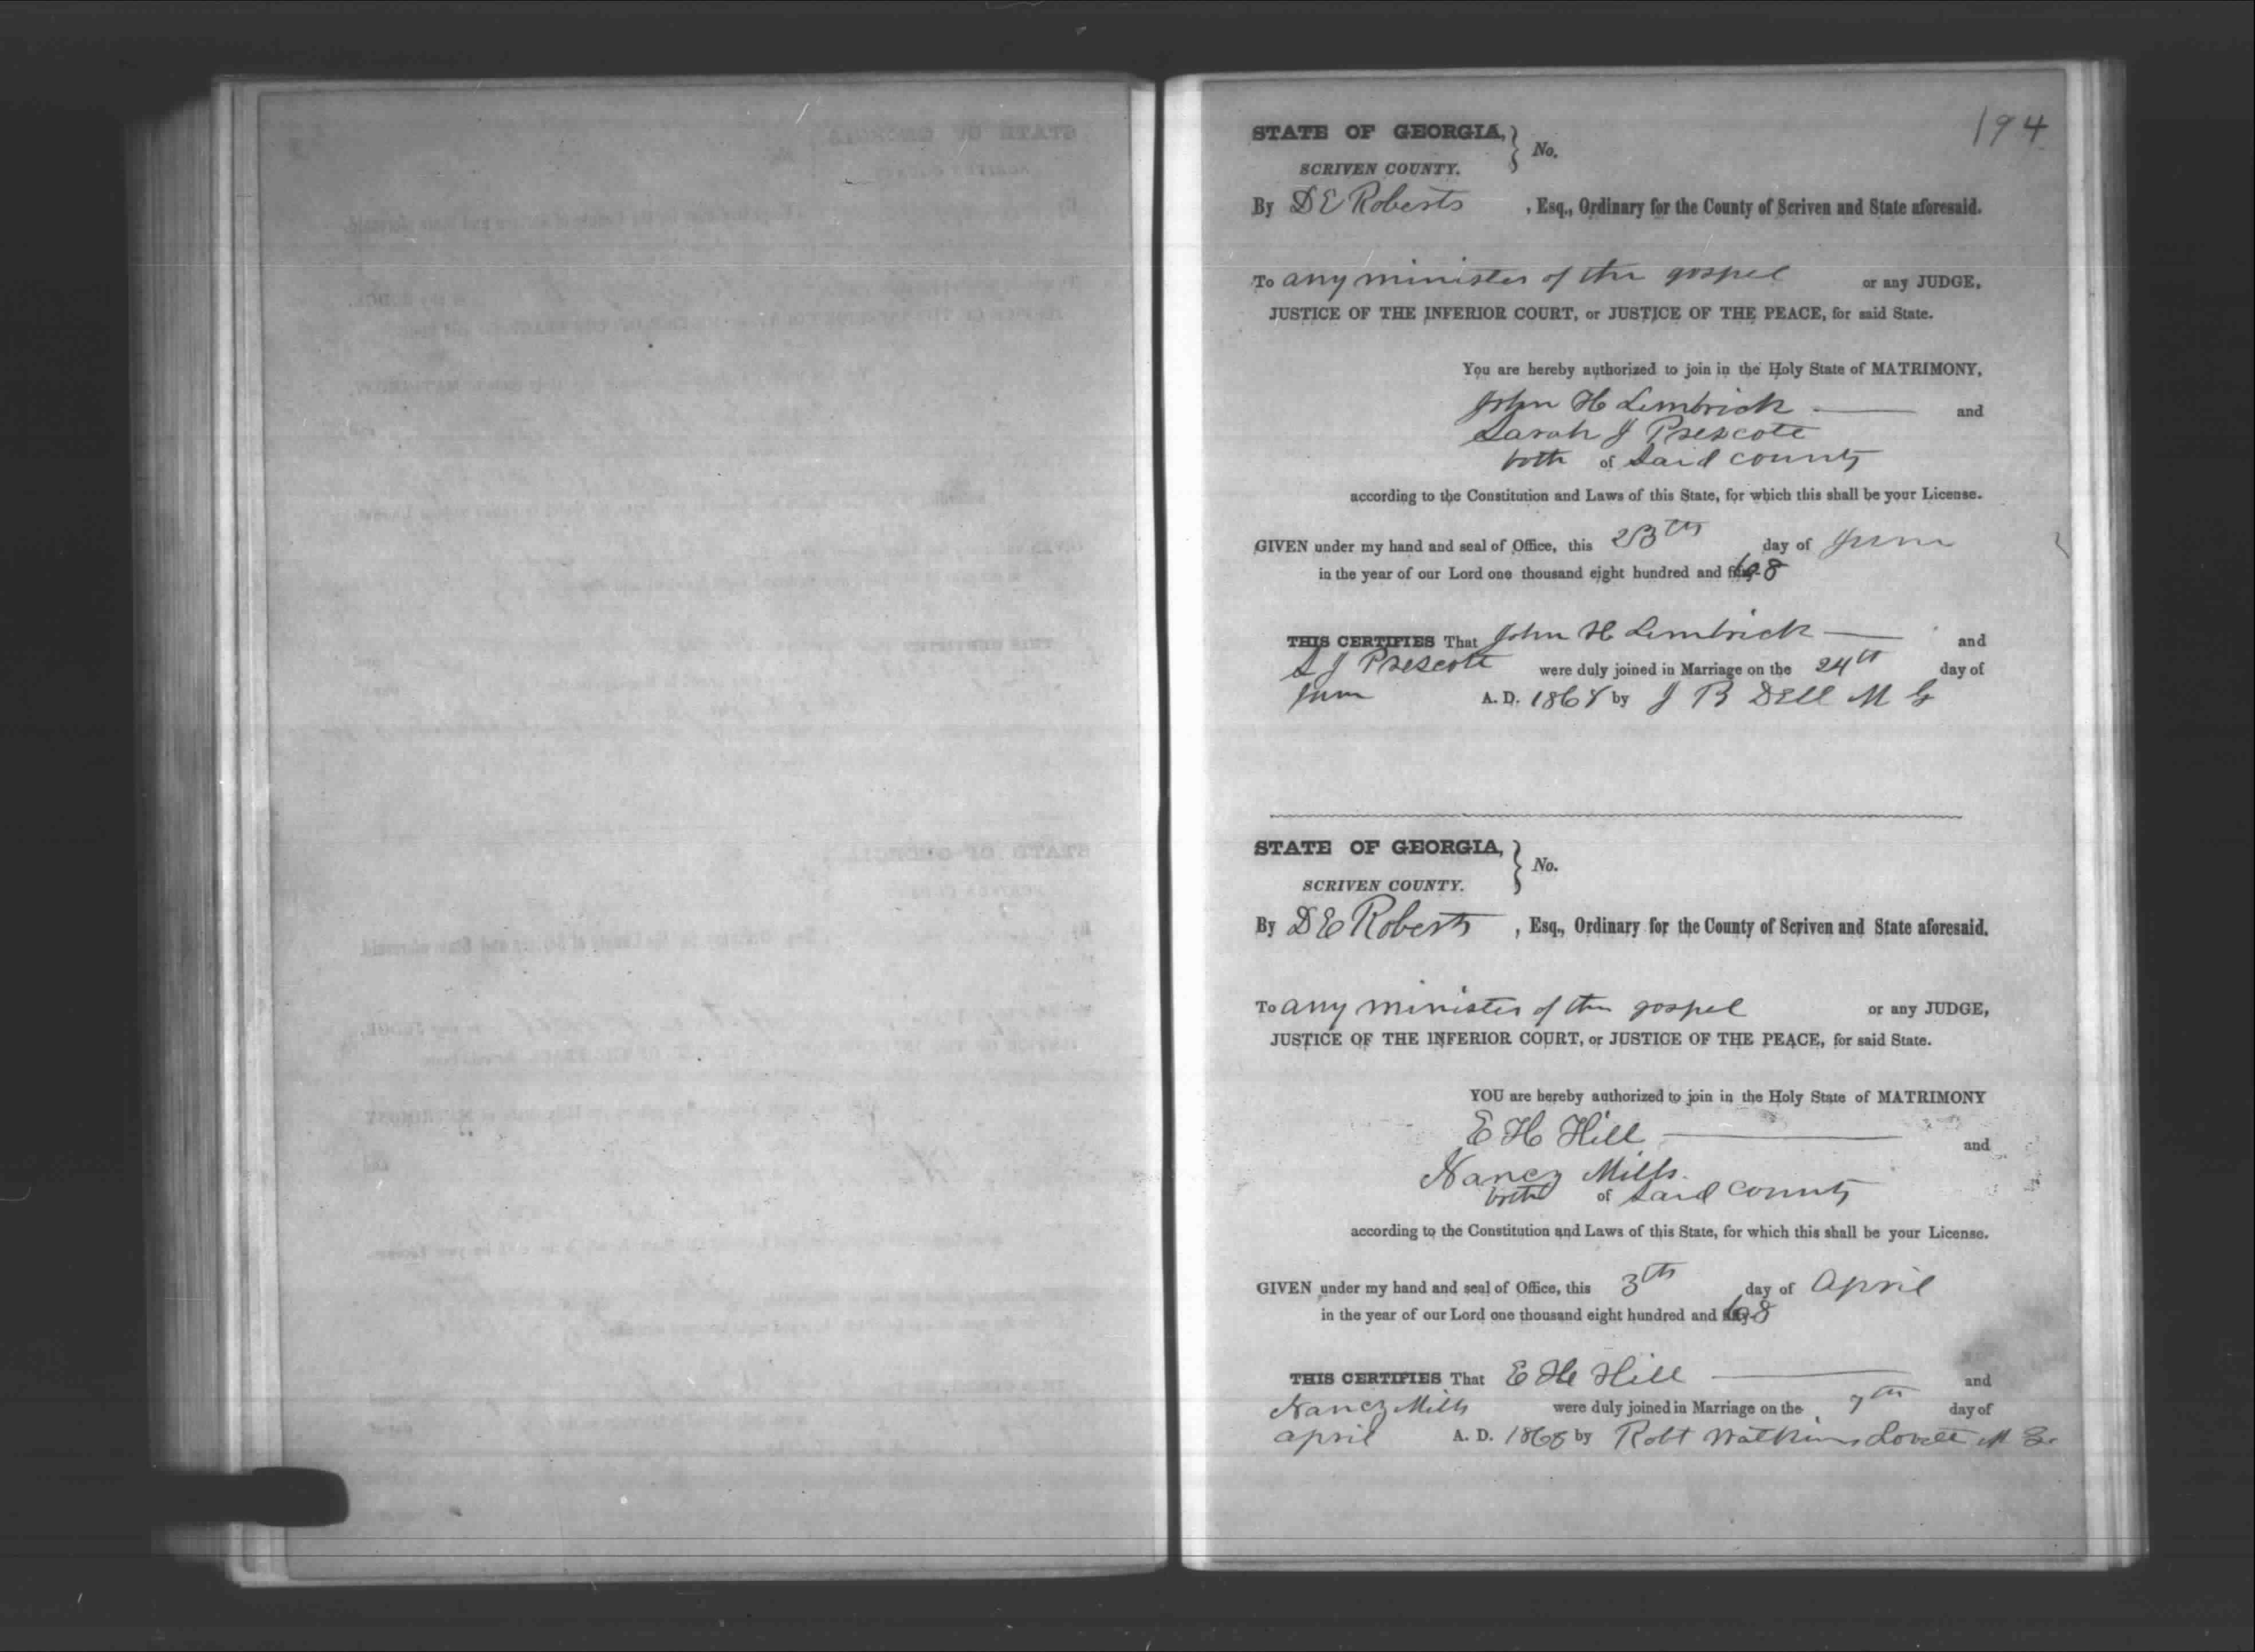 194
STATE OF GEORGIA, } No.
SCRIVEN COUNTY.
By D E Roberts , Esq., Ordinary for the County of Scriven and State aforesaid.
To any minister of the gospel or any JUDGE,
JUSTICE OF THE INFERIOR COURT, or JUSTICE OF THE PEACE, for said State.
You are hereby authorized to join in the Holy State of MATRIMONY,
John H Limbrick and
Sarah J Prescott
both of Said county
according to the Constitution and Laws of this State, for which this shall be your License.
GIVEN under my hand and seal of Office, this 23th day of June
in the year of our Lord one thousand eight hundred and 68
THIS CERTIFIES That John H Limbrick and
S J Prescott were duly joined in Marriage on the 24th day of
June A. D. 1868 by J B Dell M G
STATE OF GEORGIA, } No.
SCRIVEN COUNTY.
By D E Roberts , Esq., Ordinary for the County of Scriven and State aforesaid.
To any minister of the gospel or any JUDGE,
JUSTICE OF THE INFERIOR COURT, or JUSTICE OF THE PEACE, for said State.
YOU are hereby authorized to join in the Holy State of MATRIMONY
E H Hill and
Nancy Mills
both of Said county
according to the Constitution and Laws of this State, for which this shall be your License.
GIVEN under my hand and seal of Office, this 3th day of April
in the year of our Lord one thousand eight hundred and 68
THIS CERTIFIES That E H Hill and
Nancy Mills were duly joined in Marriage on the 7th day of
april A. D. 1868 by Robt Watkins Lovett M G